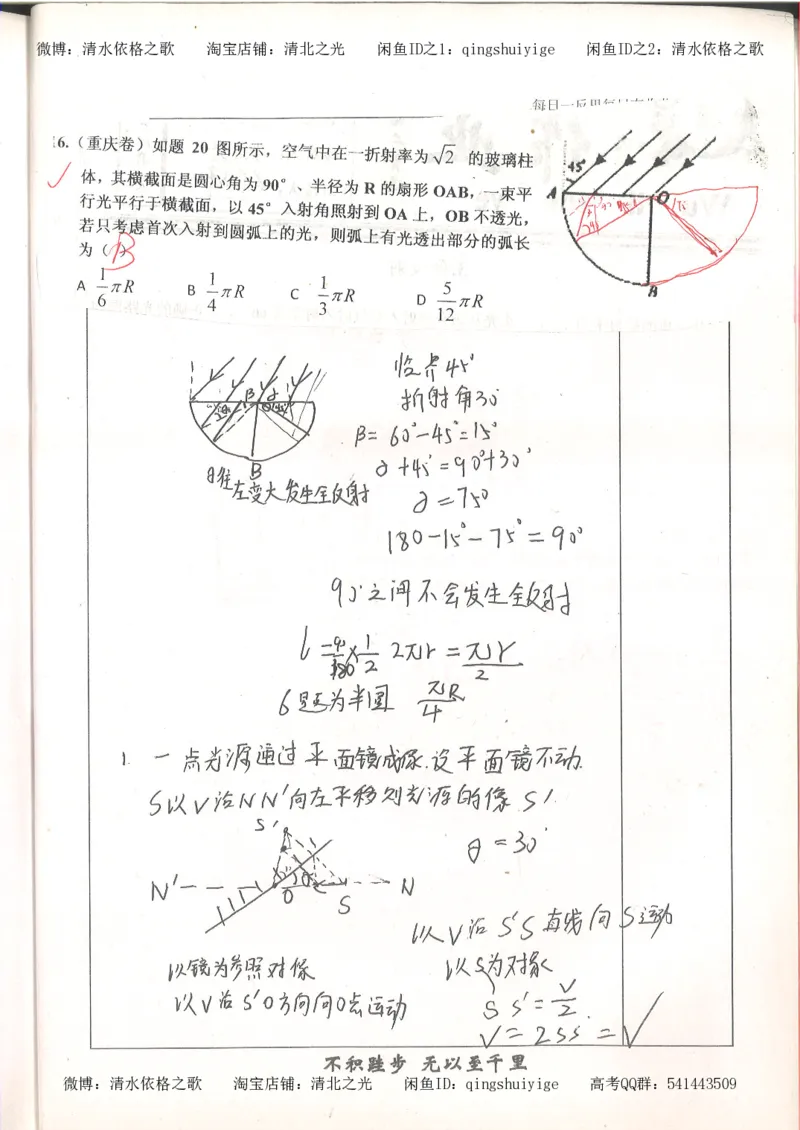 微博：清水依格之歌 淘宝店铺：清北之光 闲鱼ID之1：qingshuiyige 闲鱼ID之2：清水依格之歌
6.（重庆卷）如题 20 图所示，空气中在一折射率为 √2 的玻璃柱
体，其横截面是圆心角为 90°、半径为 R 的扇形 OAB，一束平
行光平行于横截面，以 45° 入射角照射到 OA 上，OB 不透光，
若只考虑首次入射到圆弧上的光，则弧上有光透出部分的弧长
为（B）
A 1/6 πR B 1/4 πR C 1/3 πR D 5/12 πR
45°
A
O
B
15
临界45°
折射角30°
β=60°-45°=15°
∂+45°=90°+30°
∂=75°
180-15°-75°=90°
B
左变大发生全反射
90°之间不会发生全反射
l=90/180×1/2 2πr=πr/2
6题为半圆 πR/4
1. 一点光源通过平面镜成像.设平面镜不动.
S以V沿NN'向左平移则光源的像S'.
S'
∂=30°
N'
O
S
N
以V沿S'S直线向S运动
以镜为参照对像
以S为对象
以V沿S'O方向向O点运动
SS'=V/2.
不积跬步 无以至千里
微博：清水依格之歌 淘宝店铺：清北之光 闲鱼ID：qingshuiyige 高考QQ群：541443509